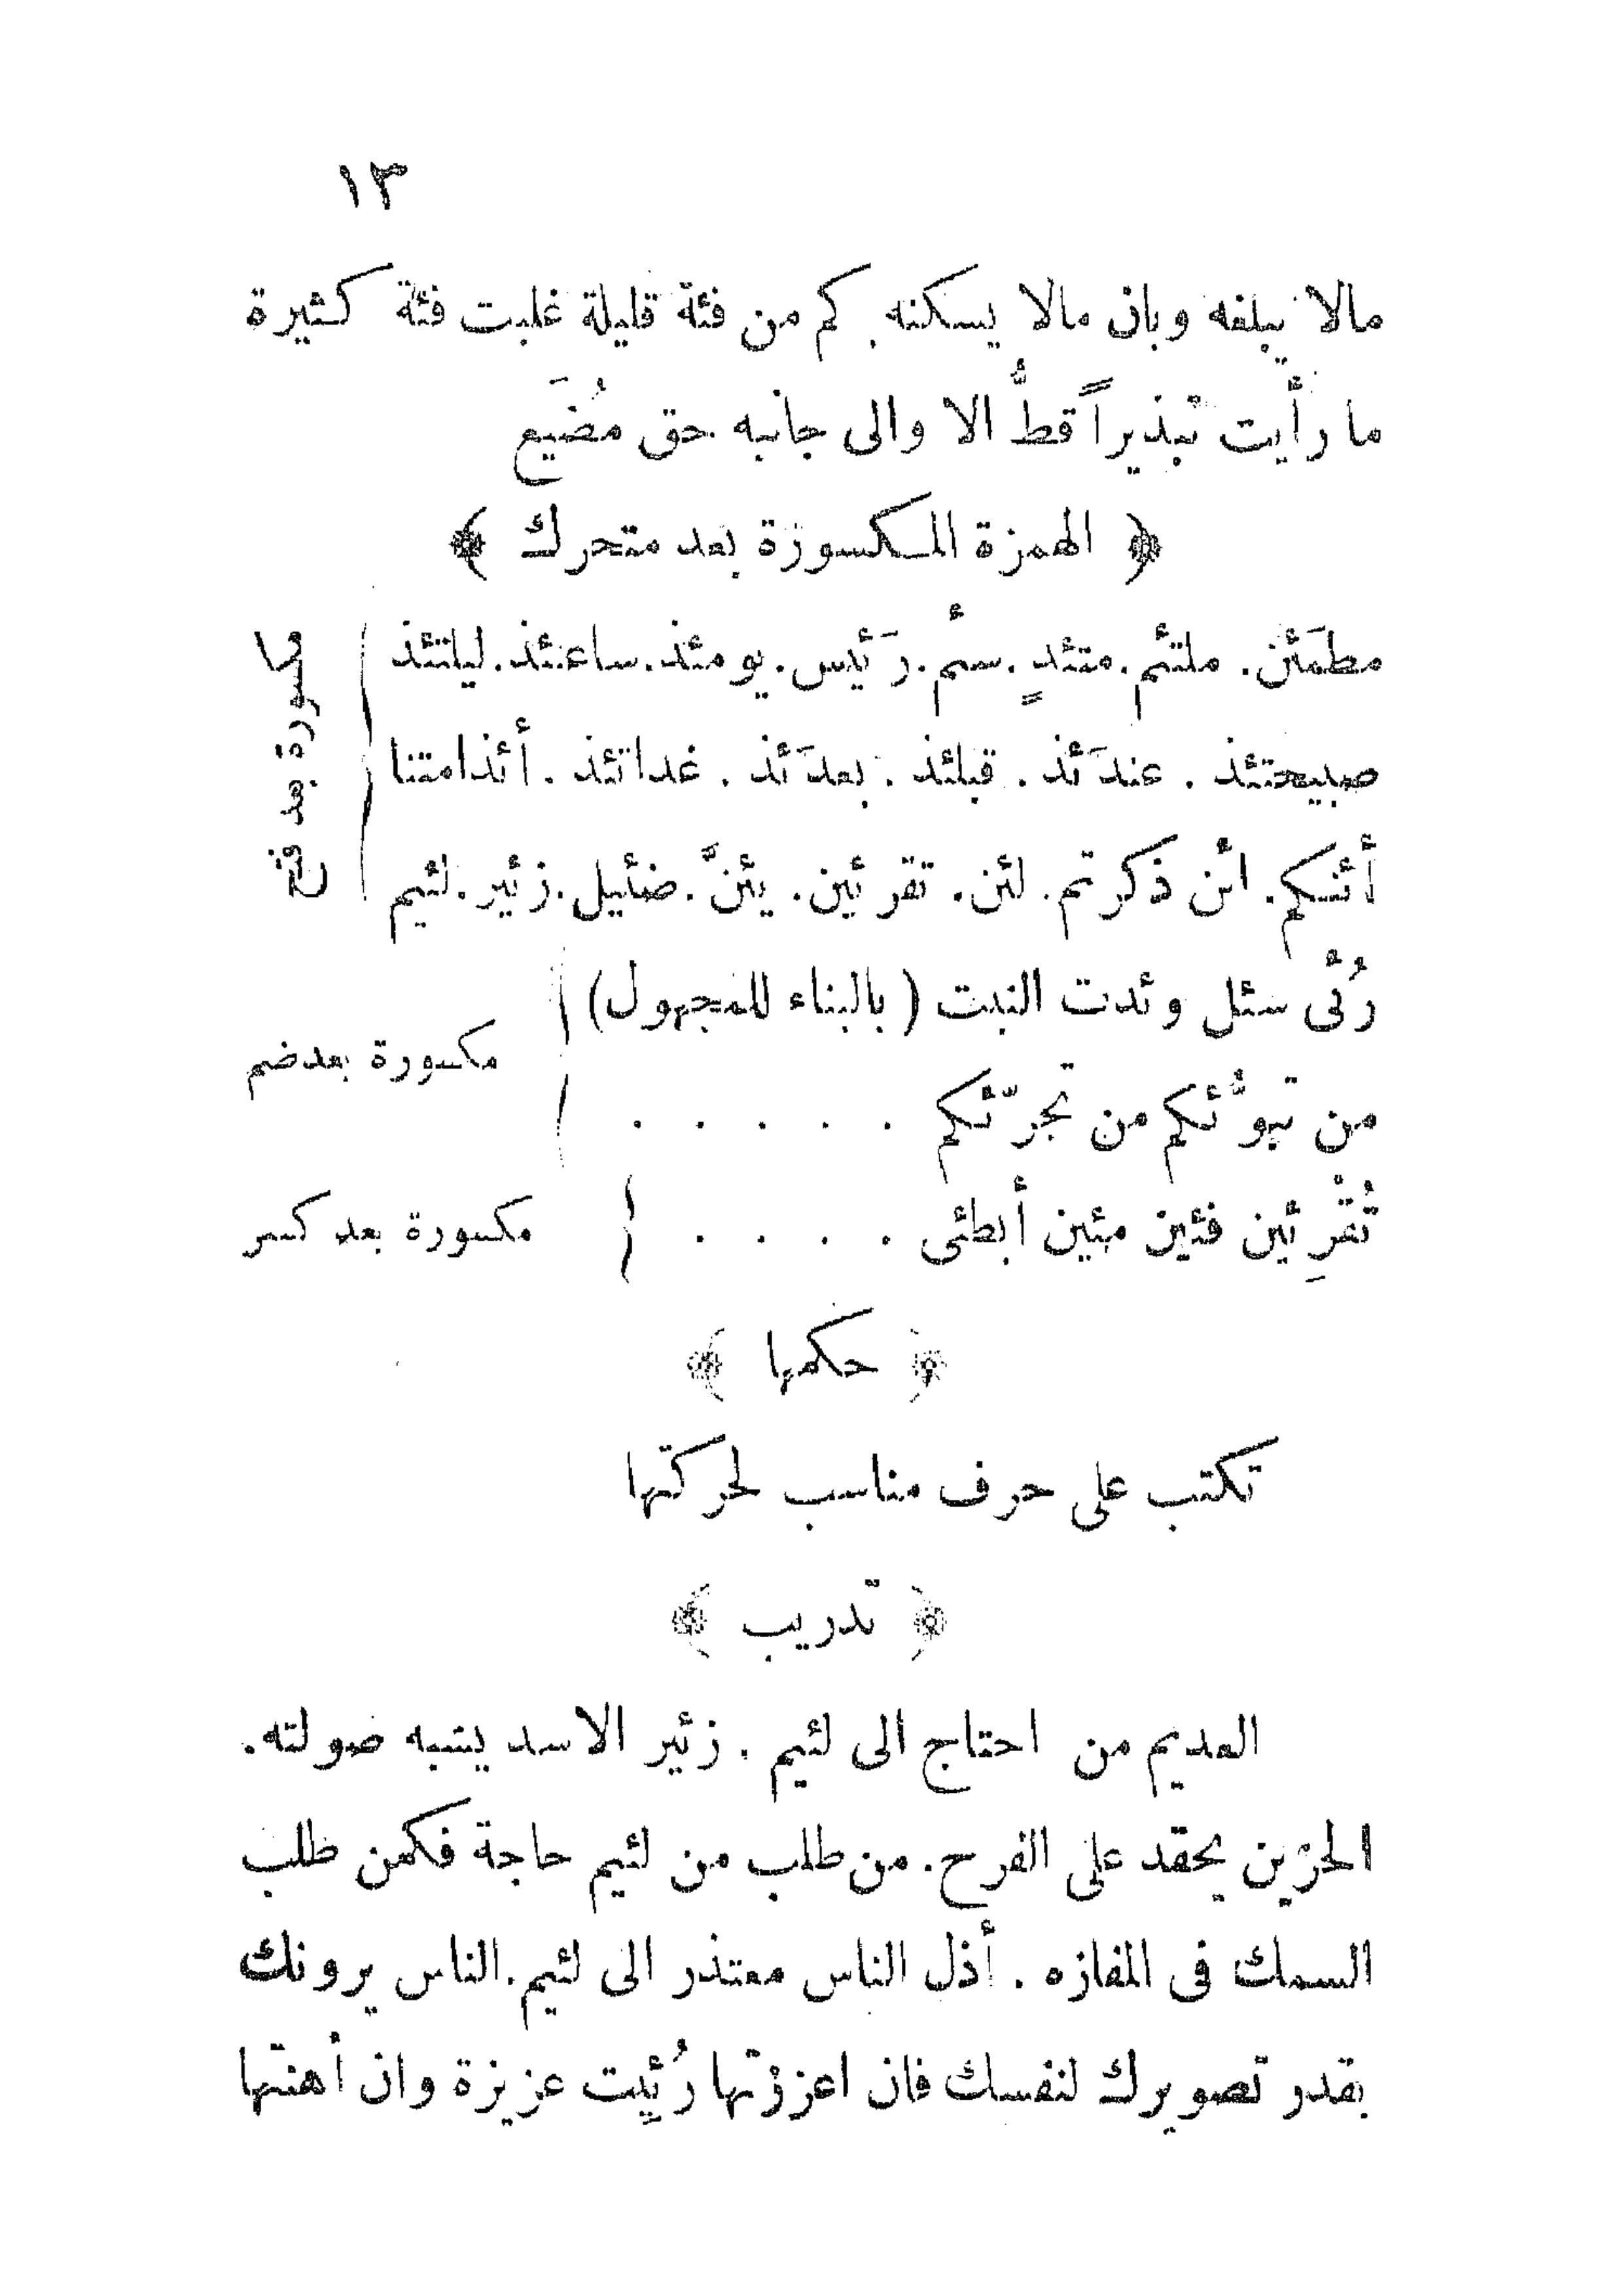 ١٣
مالا يبلغه وبان مالا يسكنه. كم من فئة قليلة غلبت فئة كثيرة
ما رأيت تبذيراً قطُّ الا والى جانبه حق مُضَيع
﴿ الهمزة المكسورة بعد متحرك ﴾
مطمَئن. ملتئم. متئدٍ. سئم. رَئيس. يومئذ. ساعتئذ. ليلتئذ
صبيحتئذ . عندَئذ . قبلئذ . بعدَئذ . غداتئذ . أئذامتنا
أئنكم. ائن ذكرتم. لئن. تقرئين. يئنَّ. ضئيل. زئير. لئيم
مكسورة بعد فتح
رُئى سئل وئدت البنت (بالبناء للمجهول)
من تبوُّئكم من تجرّئكم . . . . .
مكسورة بعد ضم
تُقْرِئين فئين مئين أبطئى . . . . مكسورة بعد كسر
﴿ حكمها ﴾
تكتب على حرف مناسب لحركتها
﴿ تدريب ﴾
العديم من احتاج الى لئيم . زئير الاسد يشبه صولته.
الحزين يحقد على الفرح. من طلب من لئيم حاجة فكمن طلب
السمك فى المفازه . أذل الناس معتذر الى لئيم. الناس يرونك
بقدر تصويرك لنفسك فان اعززتها رُئِيت عزيزة وان أهنتها